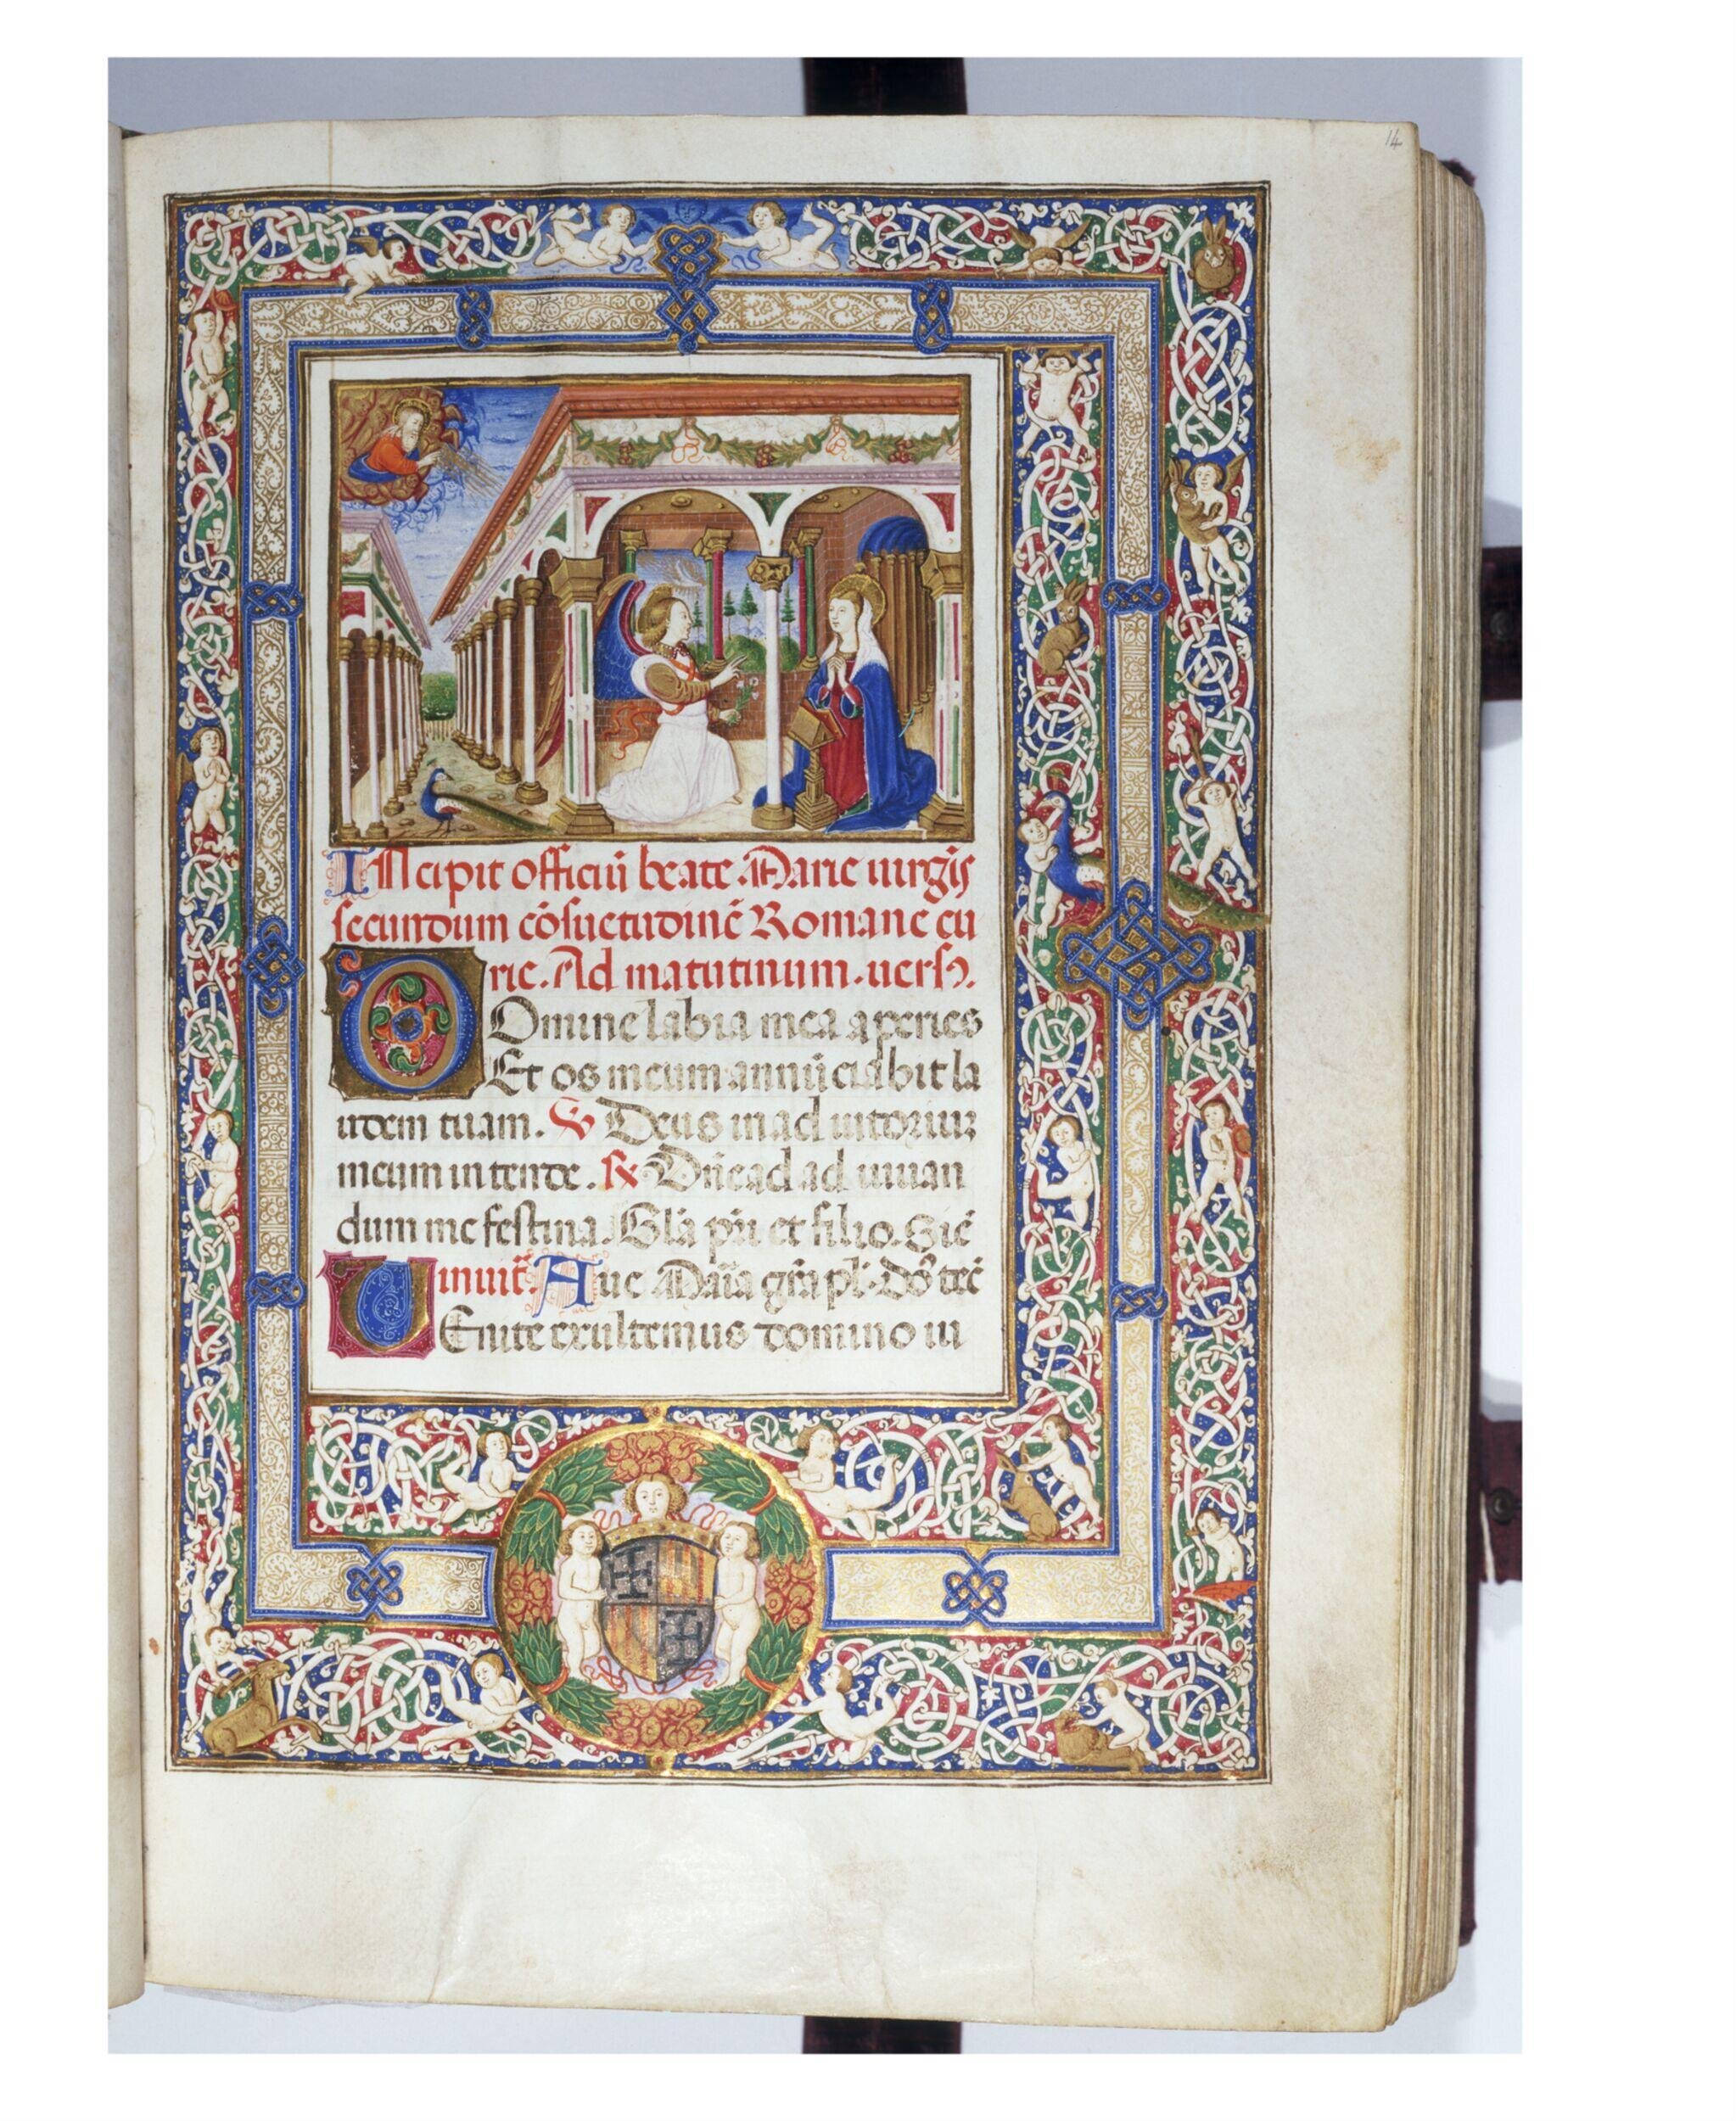 14
INcipit officiū beate Marie uirgīs
secundum cōsuetudinē Romane cu
rie. Ad matutinum. uers.
Domine labia mea aperies
Et os meum annūciabit la
udem tuam. ℣ Deus in ad iutoriuz
meum intende. ℟ Dñe ad ad iuuan
dum me festina. Gła pr̄i et filio. Sic̄
inuit̄. Aue Maīa gr̄a pł. Dōs tec̄
VEnite exultemus domino iu